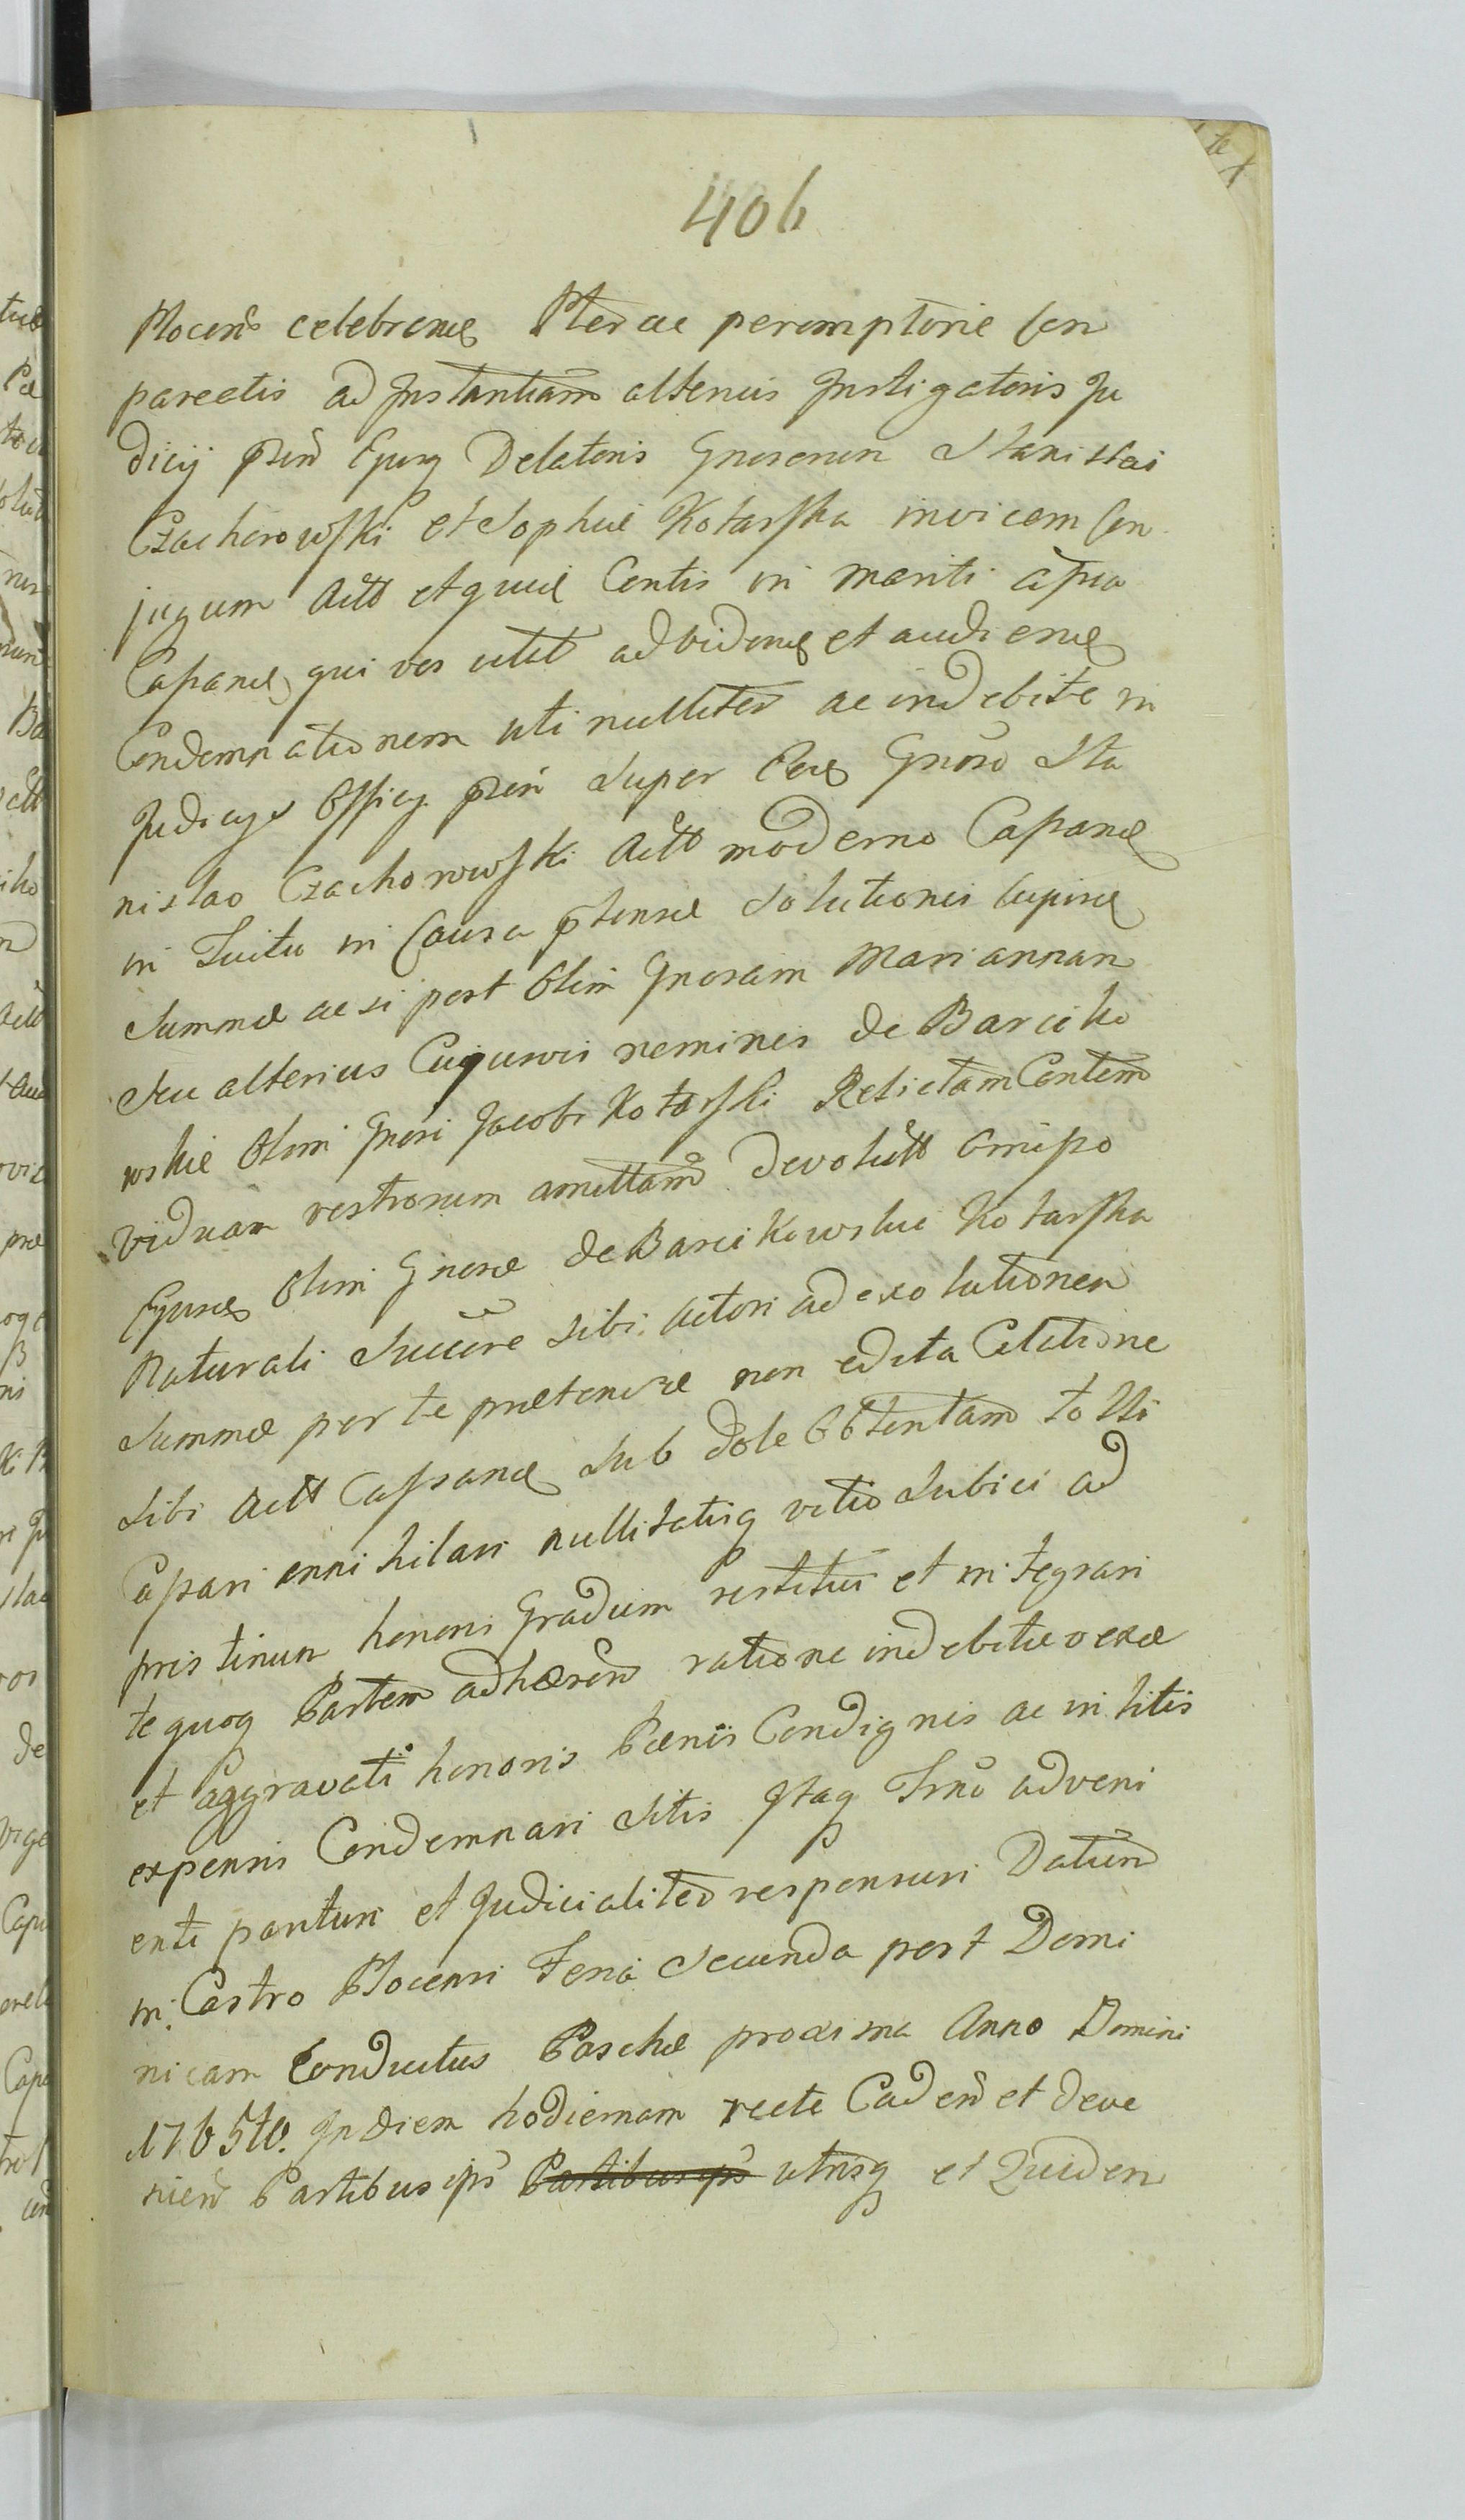 406
Plocens celebrans Pter ac peremptorie Con
pareatis ad Instantiam alterius Instigatoris Ju
dicij psen Ejusq Delatoris Gnosorum Stanislai
Czachorowski et Sophiæ Kotarska invicem Con
jugum Actt et quæ Contis in mariti assisa
Cassand qui vos citat ad vidend et audiend
Condemnationem uti nulliter ac indebite in
Judicijs Officij psen Super Pers Gnoso Sta
nislao Czachorowski Actt moderno Cassand
in Lucitu in Causa ptensæ Solutionis cupind
Summæ ac si post Olim Gnosam Mariannam
seu alterius Cujusvis neminis de Barciko
wskie Olim Gnosi Jacobi Kotarski Relictam Contem
viduam vestrorum amittam devolutt omipso
Ejusd Olim Gnosæ de Barcikowskie Kotarska
Naturali Succere sibi Actori ad exolutionem
Summæ per te prætensæ non edita Citatione
sibi Actt Cassand sub dole Obtentam tolli
Cassari annihilari nullitatisq vitio subici ad
pristinum honoris Gradum restitui et in tegrari
te quoq Partem adhæren ratione indebitæ vexæ
et aggravati honoris Pænis Condignis ac in litis
expensis Condemnari Sitis Itaq Trno adveni
enti parituri et Judicialiter responsuri Datum
in Castro Plocensi Feria Secunda post Domi
nicam Conductus Paschæ proxima Anno Domini
1765to. In diem hodiernam recte Caden et deve
nien Partibus ips Partibus ips utrisq et Quidem